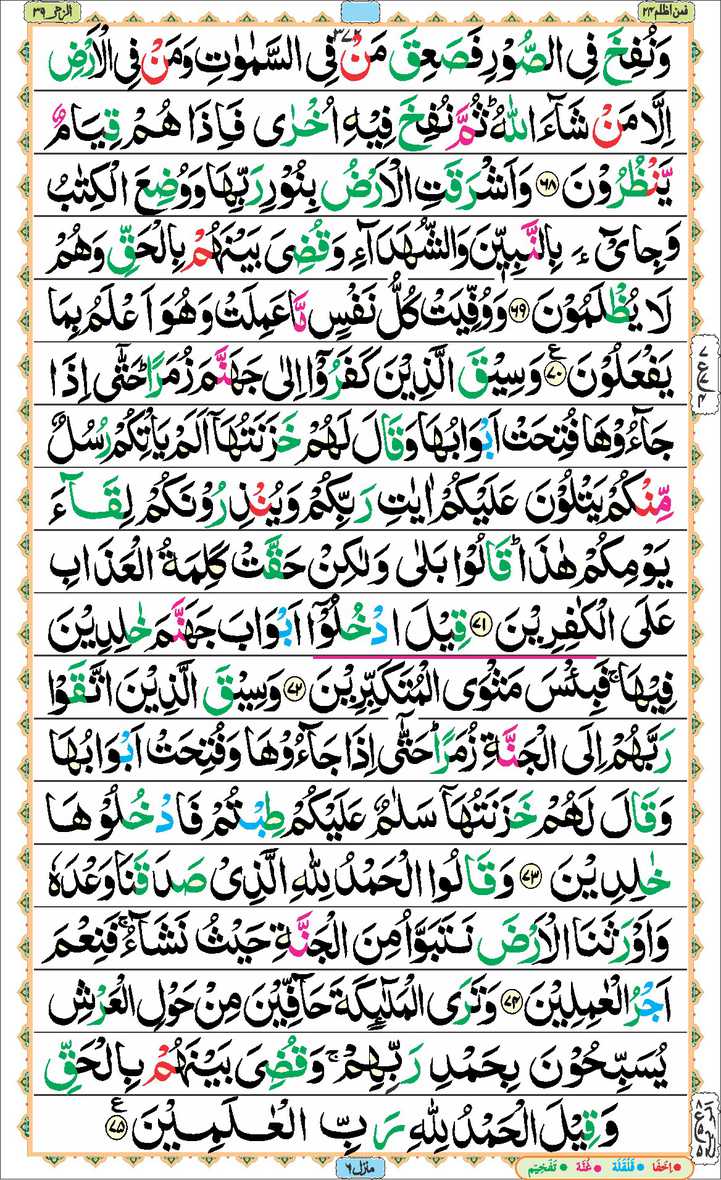 فمن اظلم ۲۴
الزمر ۳۹
۳۷۲
وَنُفِخَ فِى الصُّوۡرِ فَصَعِقَ مَنۡ فِى السَّمٰوٰتِ وَمَنۡ فِى الۡاَرۡضِ
اِلَّا مَنۡ شَآءَ اللّٰهُ‌ؕ ثُمَّ نُفِخَ فِيۡهِ اُخۡرٰى فَاِذَا هُمۡ قِيَامٌ
يَّنۡظُرُوۡنَ ﴿۶۸﴾ وَاَشۡرَقَتِ الۡاَرۡضُ بِنُوۡرِ رَبِّهَا وَوُضِعَ الۡكِتٰبُ
وَجِاىْٓءَ بِالنَّبِيّٖنَ وَالشُّهَدَآءِ وَقُضِىَ بَيۡنَهُمۡ بِالۡحَقِّ وَهُمۡ
لَا يُظۡلَمُوۡنَ ﴿۶۹﴾ وَوُفِّيَتۡ كُلُّ نَفۡسٍ مَّا عَمِلَتۡ وَهُوَ اَعۡلَمُ بِمَا
يَفۡعَلُوۡنَ ﴿۷۰﴾ وَسِيۡقَ الَّذِيۡنَ كَفَرُوۡۤا اِلٰى جَهَنَّمَ زُمَرًا‌ؕ حَتّٰٓى اِذَا
جَآءُوۡهَا فُتِحَتۡ اَبۡوَابُهَا وَقَالَ لَهُمۡ خَزَنَتُهَاۤ اَلَمۡ يَاۡتِكُمۡ رُسُلٌ
مِّنۡكُمۡ يَتۡلُوۡنَ عَلَيۡكُمۡ اٰيٰتِ رَبِّكُمۡ وَيُنۡذِرُوۡنَكُمۡ لِقَآءَ
يَوۡمِكُمۡ هٰذَا‌ؕ قَالُوۡا بَلٰى وَلٰـكِنۡ حَقَّتۡ كَلِمَةُ الۡعَذَابِ
عَلَى الۡكٰفِرِيۡنَ ﴿۷۱﴾ قِيۡلَ ادۡخُلُوۡۤا اَبۡوَابَ جَهَنَّمَ خٰلِدِيۡنَ
فِيۡهَا‌ۚ فَبِئۡسَ مَثۡوَى الۡمُتَكَبِّرِيۡنَ ﴿۷۲﴾ وَسِيۡقَ الَّذِيۡنَ اتَّقَوۡا
رَبَّهُمۡ اِلَى الۡجَنَّةِ زُمَرًا‌ؕ حَتّٰٓى اِذَا جَآءُوۡهَا وَفُتِحَتۡ اَبۡوَابُهَا
وَقَالَ لَهُمۡ خَزَنَتُهَا سَلٰمٌ عَلَيۡكُمۡ طِبۡتُمۡ فَادۡخُلُوۡهَا
خٰلِدِيۡنَ ﴿۷۳﴾ وَقَالُوا الۡحَمۡدُ لِلّٰهِ الَّذِىۡ صَدَقَنَا وَعۡدَهٗ
وَاَوۡرَثَنَا الۡاَرۡضَ نَتَبَوَّاُ مِنَ الۡجَنَّةِ حَيۡثُ نَشَآءُ‌ۚ فَنِعۡمَ
اَجۡرُ الۡعٰمِلِيۡنَ ﴿۷۴﴾ وَتَرَى الۡمَلٰٓٮِٕكَةَ حَآفِّيۡنَ مِنۡ حَوۡلِ الۡعَرۡشِ
يُسَبِّحُوۡنَ بِحَمۡدِ رَبِّهِمۡ‌ۚ وَقُضِىَ بَيۡنَهُمۡ بِالۡحَقِّ
وَقِيۡلَ الۡحَمۡدُ لِلّٰهِ رَبِّ الۡعٰلَمِيۡنَ ﴿۷۵﴾
منزل ۶
اِخفَا قَلْقَلَة غُنَّة تَفْخِيْم